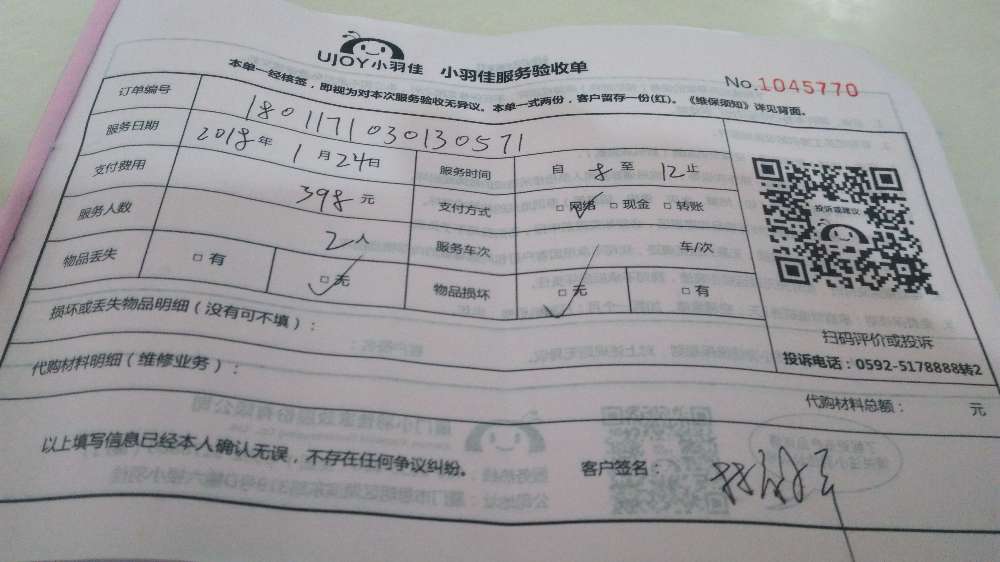 UJOY小羽佳 小羽佳服务验收单
No.1045770
本单一经核签，即视为对本次服务验收无异议。本单一式两份，客户留存一份(红)。《维保须知》详见背面。
订单编号 180117103013057​1
服务日期 2018年 1月24日 服务时间 自 8 至 12止
支付费用 398元 支付方式 □网络 □现金 □转账
服务人数 2人 服务车次 车/次
物品丢失 □有 □无 物品损坏 □无 □有
投诉或建议
扫码评价或投诉
投诉电话：0592-5178888转2
损坏或丢失物品明细（没有可不填）：
代购材料明细（维修业务）：
代购材料总额： 元
以上填写信息已经本人确认无误，不存在任何争议纠纷。 客户签名：